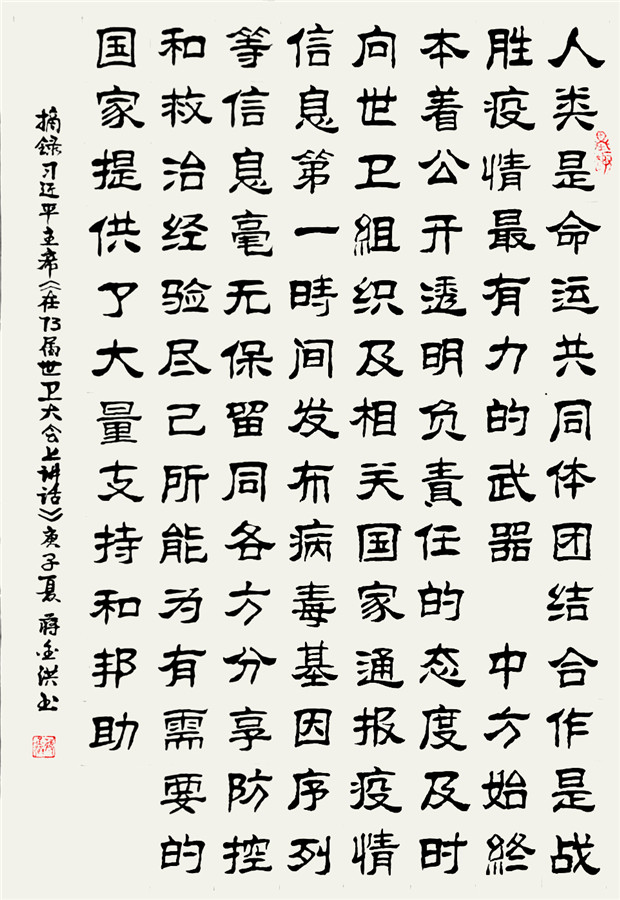 人类是命运共同体团结合作是战
胜疫情最有力的武器 中方始終
本着公开透明负责任的态度及时
向世卫组织及相关国家通报疫情
信息第一時间发布病毒基因序列
等信息毫无保留同各方分享防控
和救治经验尽己所能为有需要的
国家提供了大量支持和邦助
摘録习近平主席《在73届世卫大会上讲话》庚子夏 蒋金洪书